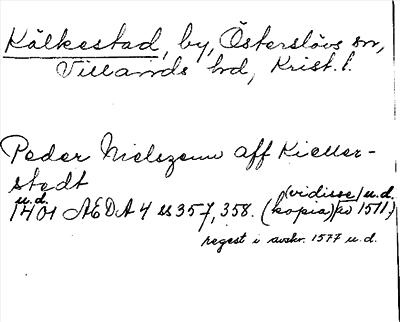 Kälkestad, by, Österslövs sn,
Villands hd, Krist. l.
Peder Nielszenn aff Kieller-
stedt
u.d.
1401 AEDA 4 ss 357, 358. (kopia) (vidisse) u.d.
1511)
regest i avskr. 1577 u.d.